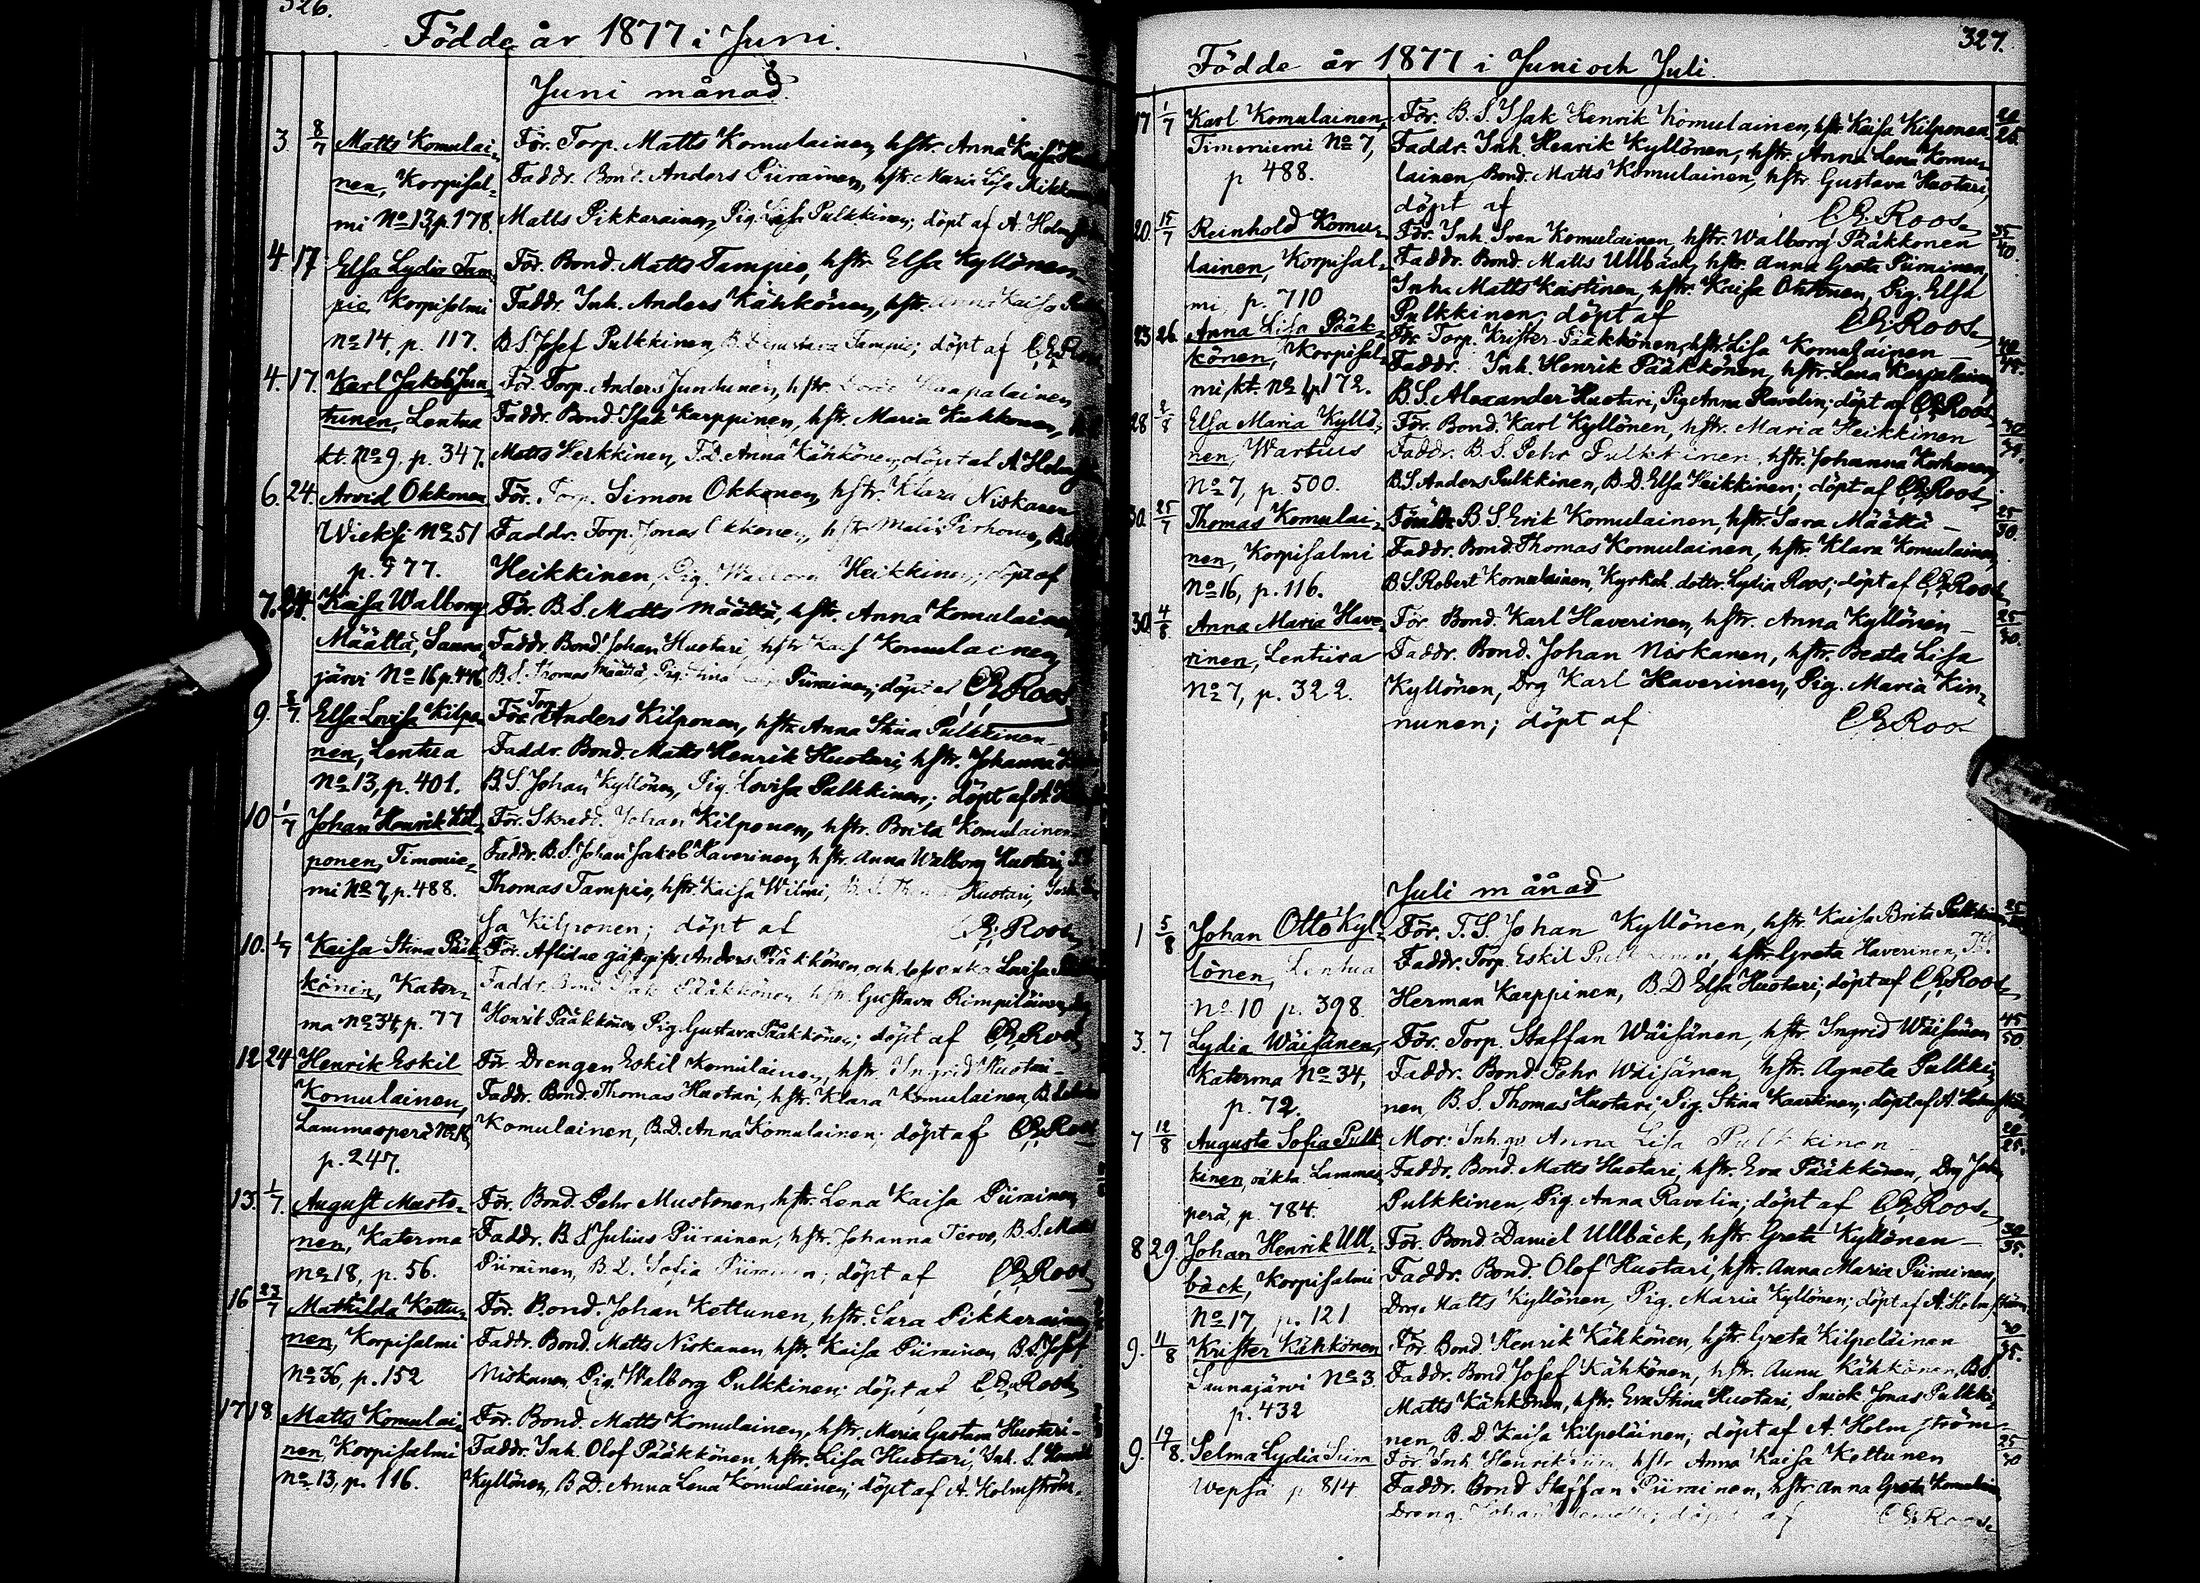 326.
Födde år 1877 i Juni.
Juni månad.
3 8/7 Matts Komulai- För. Torp. Matts Komulainen, hstr. Anna Kaisa
nen, Korpisal- Faddr. Bond. Anders Piirainen, hstr. Maria Lisa
mi No 13, p. 178. Matts Pikkarainen, Pig. Lisa Pulkkinen; döpt af A. Holmström
4 17 Elsa Lydia Tam- För. Bond. Matts Tampio, hstr. Elsa Kyllönen
pio, Korpisalmi Faddr. Inh. Anders Kähkönen, hstr. Anna Kaisa
No 14, p. 117. B.S. Josef Pulkkinen, B.D. Gustava Tampio; döpt af C.E. Roos
4. 17. Karl Jakob Jun- För. Torp. Anders Juntunen, hstr. Haapalainen
tunen, Lentua Faddr. Bond. Isak Karppinen, hstr. Maria Kakkonen,
kt. No 9, p. 347. Matts Heikkinen, T.D. Anna Kähkönen, döpt af A. Holmström
6. 24. Arvid Okkonen För. Torp. Simon Okkonen, hstr. Klara Niskanen
Wieksi No 51 Faddr. Torp. Jonas Okkonen, hstr.
p. 577. Heikkinen, Pig. Walborg Heikkinen; döpt af
7. 24. Kaisa Walborg För. B.S. Matts Määttä, hstr. Anna Komulainen
Määttä, Sauna- Faddr. Bond. Johan Huotari, hstr. Komulainen,
järvi No 16 p. 446 B.S. Thomas Määttä, Pig. Stina Piirainen; döpt af C.E. Roos
9. 8/7. Elsa Lovisa Kilpo- För. Torp. Anders Kilponen, hstr. Anna Stina Pulkkinen
nen, Lentua Faddr. Bond. Matts Henrik Huotari, hstr. Johanna
No 13, p. 401. B.S. Johan Kyllönen, Pig. Lovisa Pulkkinen; döpt af A.
10 1/7 Johan Henrik Kil- För. Skradd. Johan Kilponen, hstr. Brita Komulainen
ponen, Timonie- Faddr. B.S. Johan Jakob Haverinen, hstr. Anna Walborg Huotari,
mi No 7, p. 488. Thomas Tampio, hstr. Kaisa Wilmi, B.S. Huotari,
sa Kilponen; döpt af C.E. Roos
10. 1/7 Kaisa Stina Pääk- För. Aflidne gästgifv. Anders Pääkkönen och dess enka Lovisa
könen, Kater- Faddr. Bond. Isak Pääkkönen, hstr. Gustava Rimpiläinen,
ma No 34, p. 77 Henrik Pääkkönen, Pig. Gustava Pääkkönen; döpt af C.E. Roos
12 24 Henrik Eskil För. Drengen Eskil Komulainen, hstr. Ingrid Huotari
Komulainen, Faddr. Bond. Thomas Huotari, hstr. Klara Komulainen,
Lammasperä No 18, Komulainen, B.D. Anna Komulainen; döpt af C.E. Roos
p. 247.
13. 1/7. August Musto- För. Bond. Pehr Mustonen, hstr. Lena Kaisa Piirainen
nen, Katerma Faddr. B.S. Julius Piirainen, hstr. Johanna Tervo, B.S. Matts
No 18, p. 56. Piirainen, B.D. Sofia Piirainen; döpt af C.E. Roos
16 23/7 Mathilda Kettu- För. Bond. Johan Kettunen, hstr. Sara Pikkarainen
nen, Korpisalmi Faddr. Bond. Matts Niskanen, hstr. Kaisa Piirainen, B.S. Josef
No 36, p. 152 Niskanen, Pig. Walborg Pulkkinen; döpt af C.E. Roos
17 18 Matts Komulai- För. Bond. Matts Komulainen, hstr. Maria Gustava Huotari
nen, Korpisalmi Faddr. Inh. Olof Pääkkönen, hstr. Lisa Huotari, Inh. S.
No 13, p. 116. Kyllönen, B.D. Anna Lena Komulainen; döpt af A. Holmström.
327.
Födde år 1877 i Juni och Juli.
17 1/7 Karl Komulainen, För. B.S. Isak Henrik Komulainen, hstr. Kaisa Kilponen 20/25.
Timoniemi No 7, Faddr. Inh. Henrik Kyllönen, hstr. Anna Lena Komu-
p 488. lainen, Bond. Matts Komulainen, hstr. Gustava Huotari,
döpt af C.E. Roos
20. 15/7 Reinhold Komu- För. Inh. Sven Komulainen, hstr. Walborg Pääkkönen 35/40.
lainen, Korpisal- Faddr. Bond. Matts Ullbäck, hstr. Anna Greta Piirainen,
mi, p. 710 Inh. Matts Kastinen, hstr. Kaisa Ohtonen, Pig. Elsa
Pulkkinen; döpt af C.E. Roos
23 26. Anna Lisa Pääk- För. Torp. Krister Pääkkönen, hstr. Lisa Komulainen
könen, Korpisal- Faddr. Inh. Henrik Pääkkönen, hstr. Lena Karjalainen,
mi, kt. No 1, p 172. B.S. Alexander Huotari, Pig. Anna Ravelin; döpt af C.E. Roos
28 2/8 Elsa Maria Kyllö- För. Bond. Karl Kyllönen, hstr. Maria Heikkinen
nen, Wartius Faddr. B.S. Pehr Pulkkinen, hstr. Johanna Korhonen,
No 7, p. 500. B.S. Anders Pulkkinen, B.D. Elsa Heikkinen; döpt af C.E. Roos
30. 25/7 Thomas Komulai- B.S. Erik Komulainen, hstr. Sara Määttä 25/30.
nen, Korpisalmi Faddr. Bond. Thomas Komulainen, hstr. Klara Komulainen,
No 16, p. 116. B.S. Robert Komulainen, Kyrkoh. dottr. Lydia Roos; döpt af C.E. Roos
30. 4/8 Anna Maria Have- För. Bond. Karl Haverinen, hstr. Anna Kyllönen 25/30.
rinen, Lentiira Faddr. Bond. Johan Niskanen, hstr. Beata Lisa
No 7, p. 322. Kyllönen, Drg Karl Haverinen, Pig. Maria Kin-
nunen; döpt af C.E. Roos
Juli månad
1 5/8 Johan Otto Kyl- För. T.S. Johan Kyllönen, hstr. Kaisa Brita Pulkkinen
lönen, Lentua Faddr. Torp. Eskil Pulkkinen, hstr. Greta Haverinen, T.S.
No 10 p. 398. Herman Karppinen, B.D Elsa Huotari; döpt af C.E. Roos
3. 7 Lydia Wäisänen, För. Torp. Staffan Wäisänen, hstr. Ingrid Wäisänen 45/50.
Katerma No 34, Faddr. Bond Pehr Wäisänen, hstr. Agneta Pulkki-
p. 72. nen, B.S. Thomas Huotari, Pig. Stina Kaartinen; döpt af A. Holmström
7 12/8 Augusta Sofia Pulk- Mor: Inh. qv. Anna Lisa Pulkkinen 20/25.
kinen, oäkta, Lammas- Faddr. Bond. Matts Huotari, hstr. Eva Pääkkönen, Drg Joh.
perä, p. 784. Pulkkinen, Pig. Anna Ravelin; döpt af C.E. Roos
8 29. Johan Henrik Ull- För. Bond. Daniel Ullbäck, hstr. Greta Kyllönen 30/35.
bäck, Korpisalmi Faddr. Bond. Olof Huotari, hstr. Anna Maria Piirainen,
No 17, p. 121 Drg. Matts Kyllönen, Pig. Maria Kyllönen; döpt af A. Holmström
9. 11/8 Krister Kähkönen För. Bond. Henrik Kähkönen, hstr. Greta Kilpeläinen 30/35.
Saunajärvi No 3. Faddr. Bond. Josef Kähkönen, hstr. Anna Kähkönen, B.S.
p. 432 Matts Kähkönen, hstr. Eva Stina Huotari, Snick. Jonas Pulkki-
nen B.D. Kaisa Kilpeläinen; döpt af A. Holmström
9. 19/8. Selma Lydia Siira För. Inh. Henrik Siira, hstr. Anna Kaisa Kettunen 25/30
Wepsä p 814 Faddr. Bond Staffan Piirainen, hstr. Anna Greta Komulainen
Dreng. Johan döpt af C.E. Roos